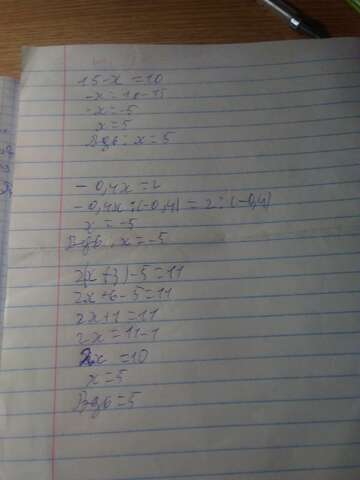 15-x=10
-x=10-15
-x=-5
x=5
Вдв: x=5
-0,4x=2
-0,4x:(-0,4)=2:(-0,4)
x=-5
Вдв: x=-5
2(x+3)-5=11
2x+6-5=11
2x+1=11
2x=11-1
2x=10
x=5
Вдв=5